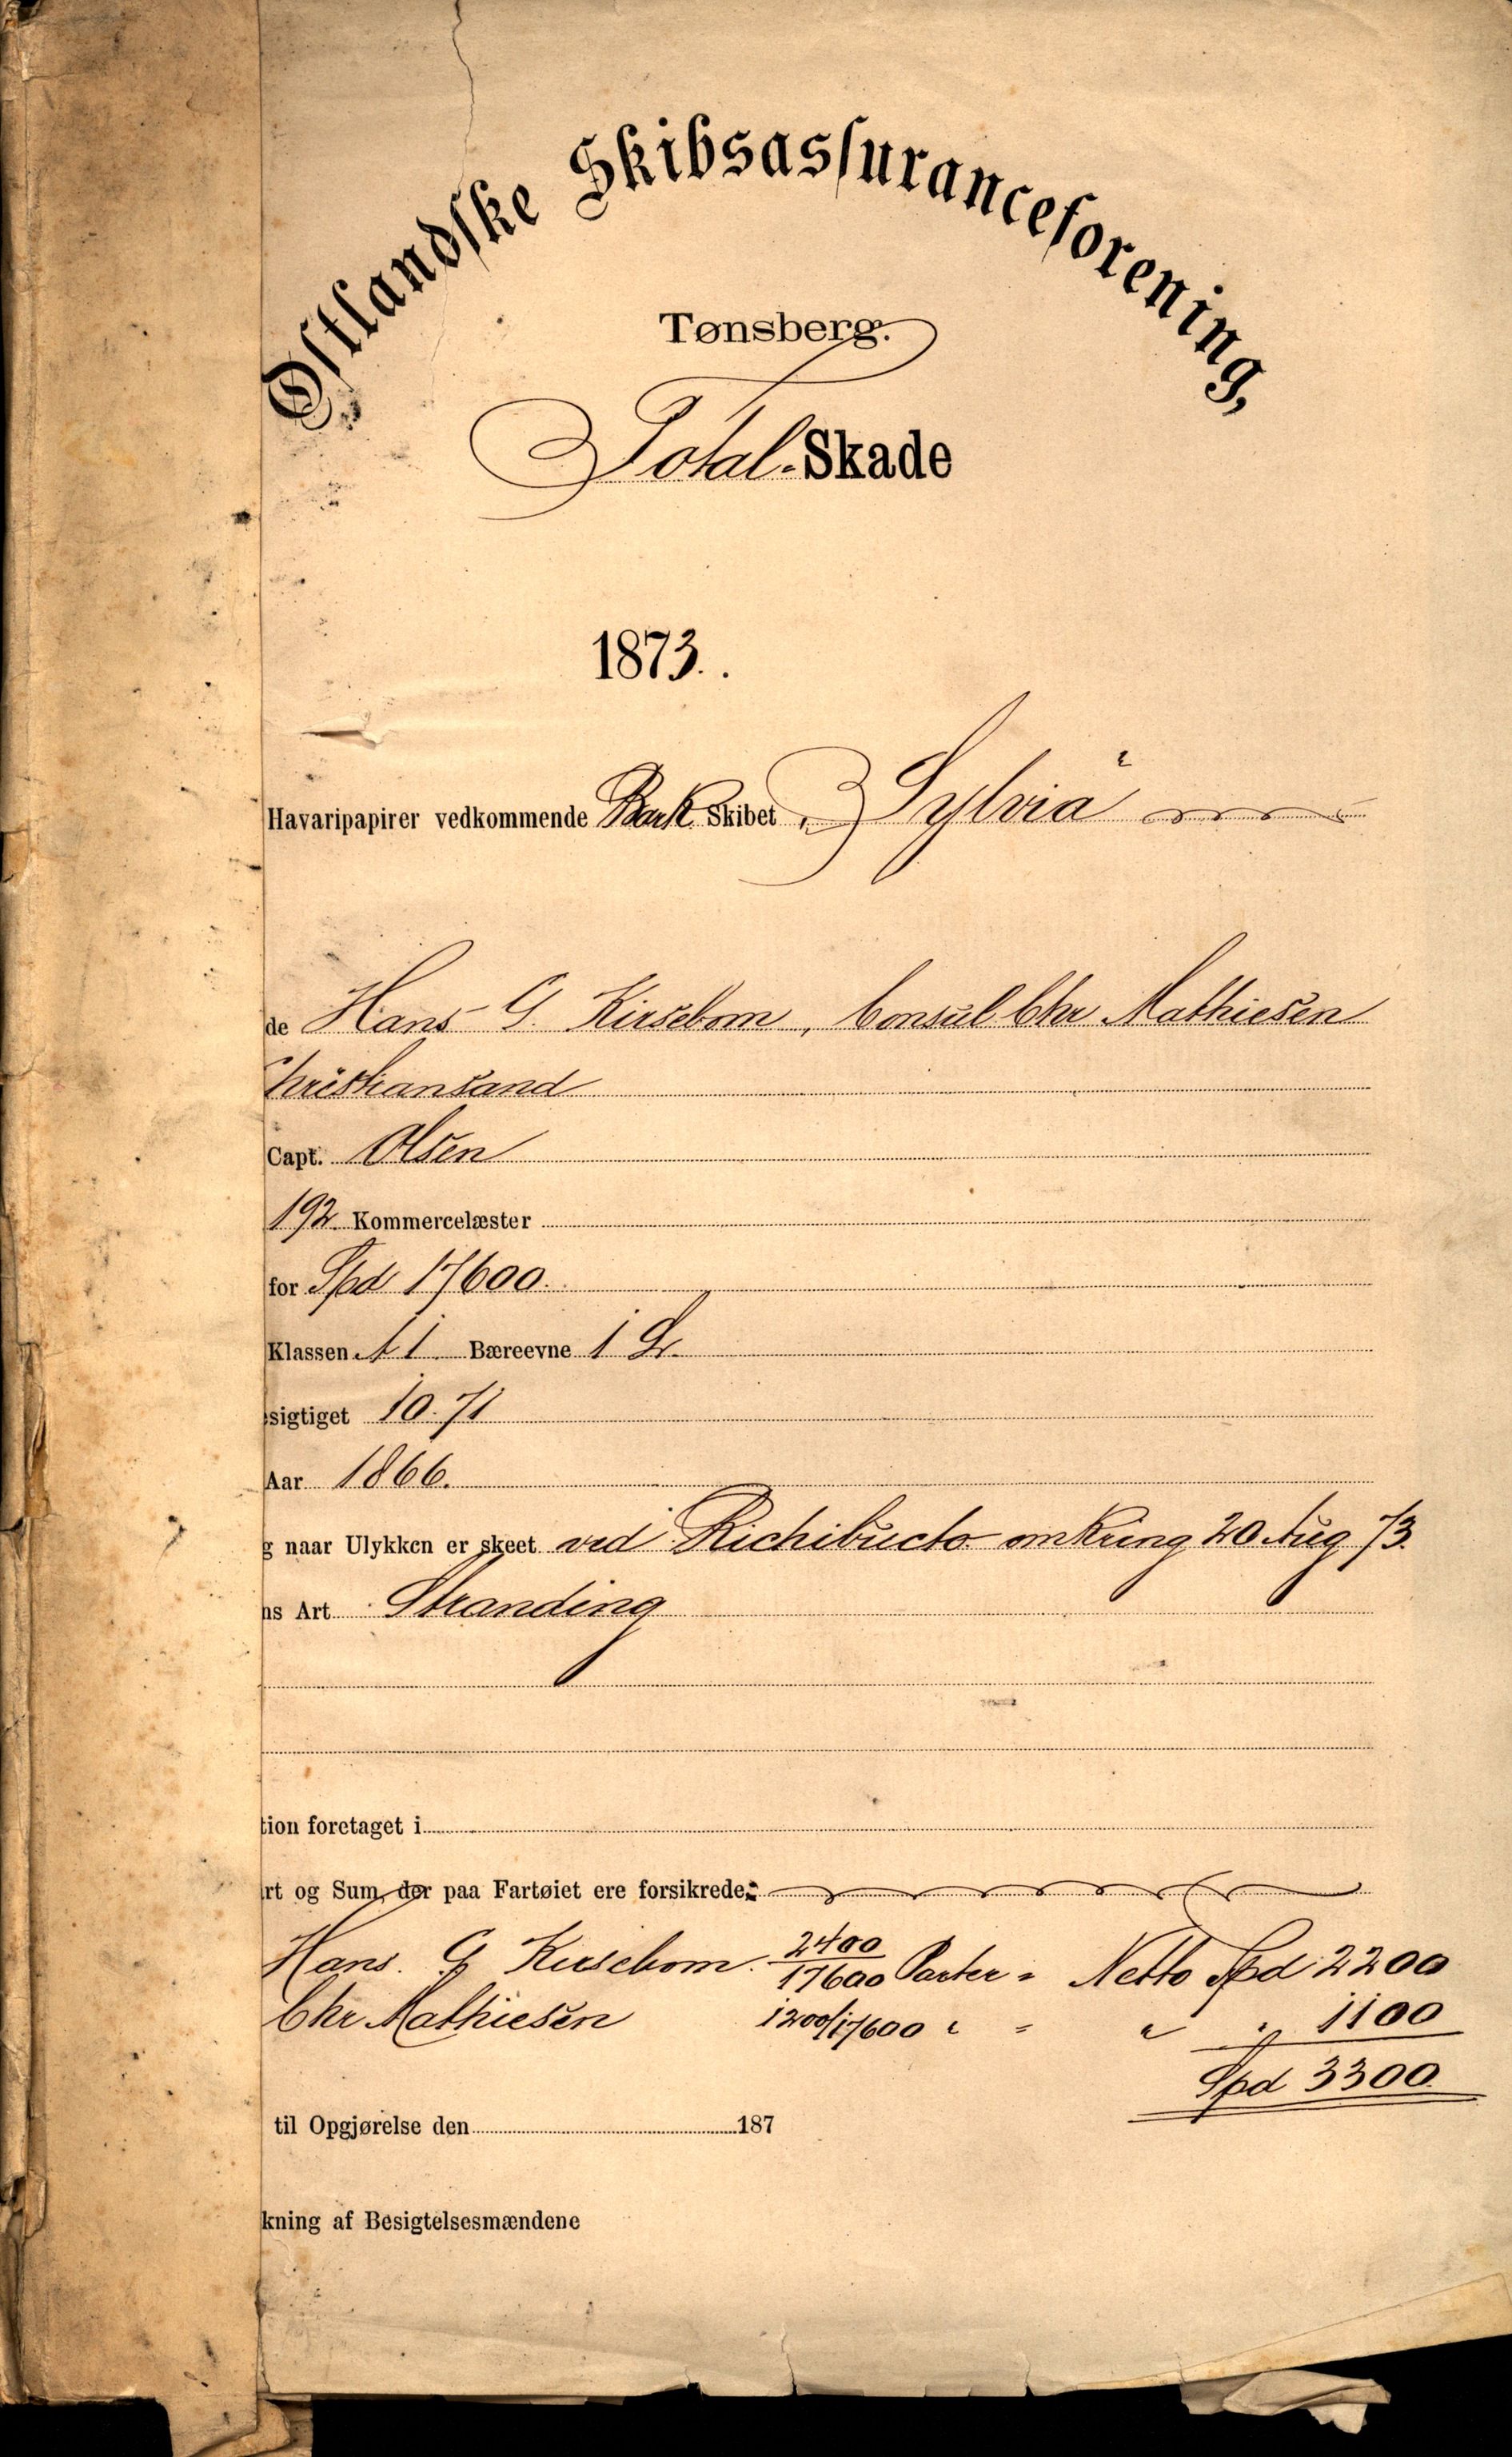 Østlandske Skibsassuranceforening,
Tønsberg.
Total-Skade
1873.
Havaripapirer vedkommende Bark Skibet „Sylvia“
de Hans G. Kirsebom, Consul Chr Mathiesen
Christiansand
Capt. Olsen
192 Kommercelæster
for Spd 17600.
Klassen A1 Bæreevne 1 Gr.
sigtiget 10.71
Aar 1866.
g naar Ulykken er skeet ved Richibucto omkring 20 Aug 73.
ns Art Stranding
tion foretaget i
rt og Sum, der paa Fartøiet ere forsikrede:
Hans. G Kirsebom. 2400/17600 Parter = Netto Spd 2200
Chr Mathiesen 1200/17600 " = " " 1100
Spd 3300
til Opgjørelse den 187
kning af Besigtelsesmændene